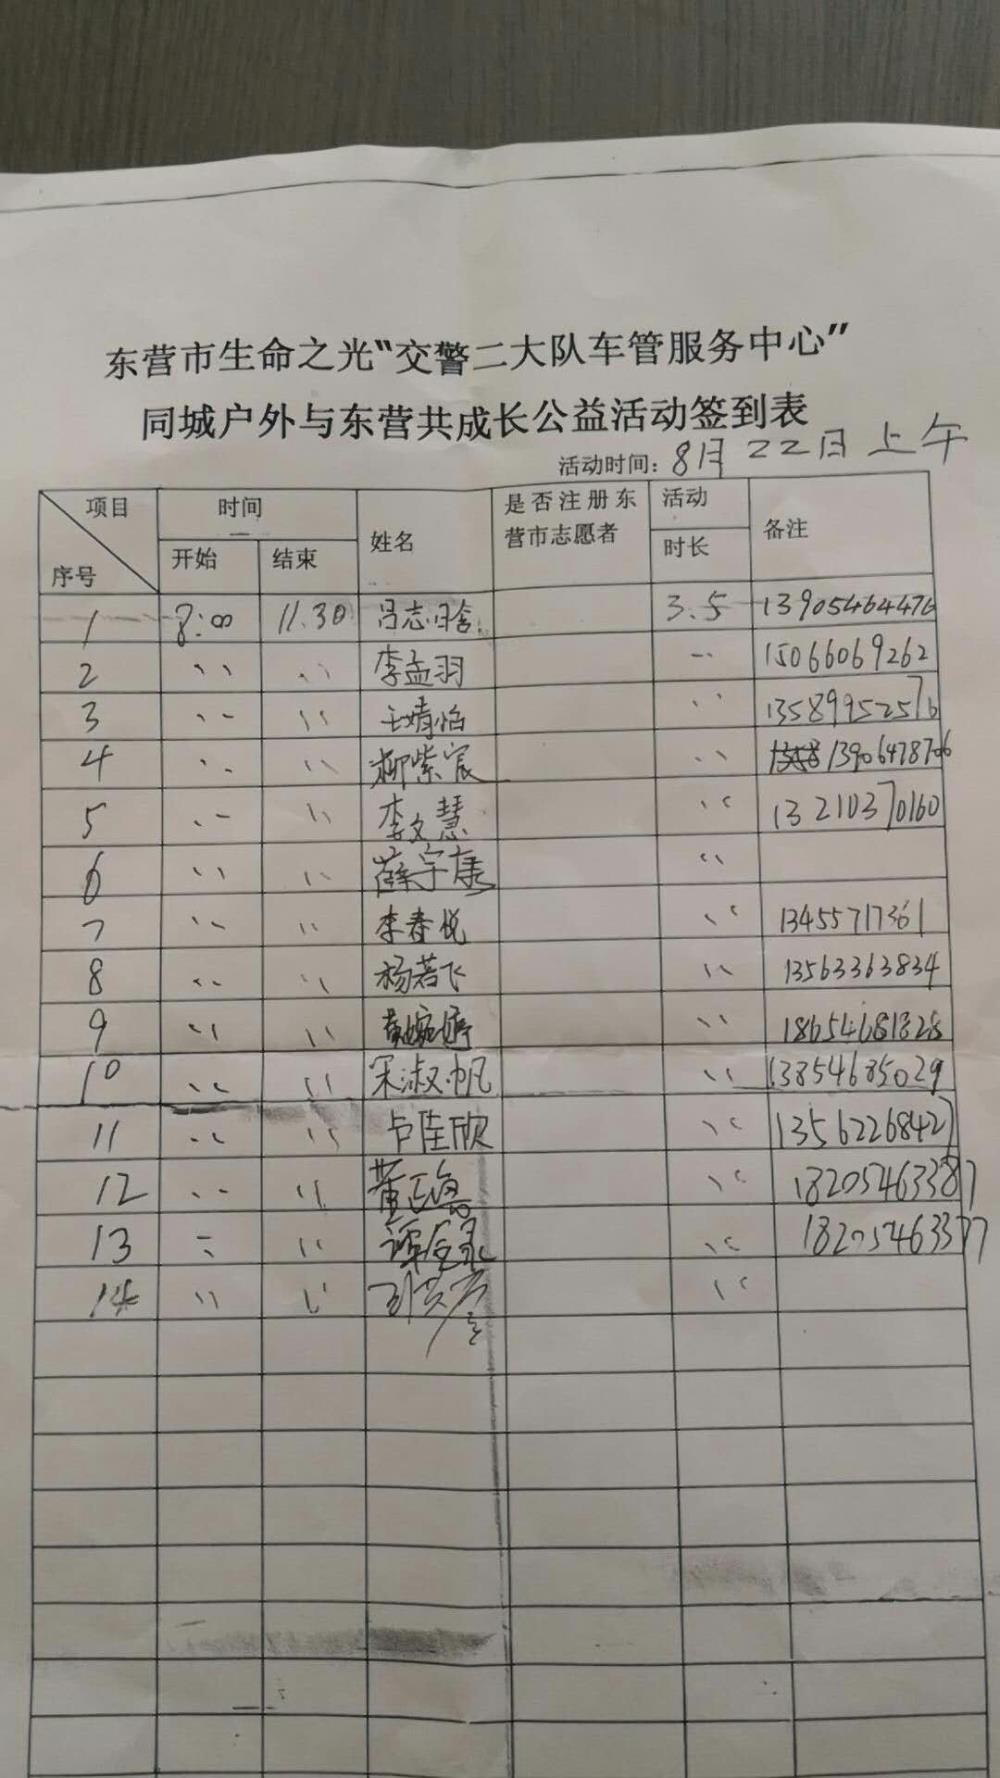 东营市生命之光“交警二大队车管服务中心”
同城户外与东营共成长公益活动签到表
活动时间：8月22日上午
项目 时间 姓名 是否注册东营市志愿者 活动时长 备注
序号 开始 结束
1 8:00 11.30 吕志晗 3.5 13905464476
2 〃 〃 李孟羽 〃 15066069262
3 〃 〃 王婧怡 〃 13589952576
4 〃 〃 柳紫宸 〃 13906478706
5 〃 〃 李文慧 〃 13210370160
6 〃 〃 薛宇康 〃
7 〃 〃 李春悦 〃 13455717361
8 〃 〃 杨若飞 〃 13563363834
9 〃 〃 黄婉婷 〃 18654681328
10 〃 〃 宋淑帆 〃 13854685029
11 〃 〃 卢佳欣 〃 13562268427
12 〃 〃 董正鲁 〃 18205463387
13 〃 〃 〃 18205463377
14 〃 〃 〃